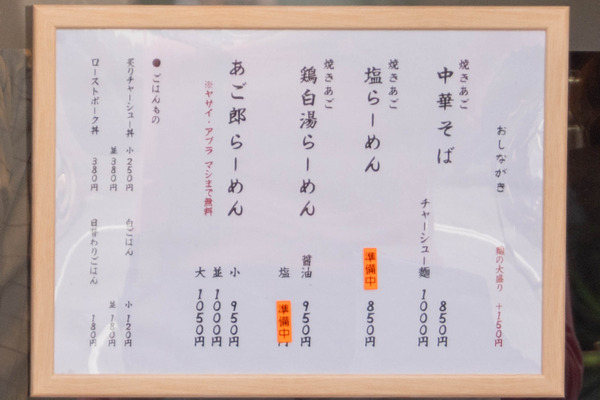 おしながき
麺の大盛り +150円
焼きあご
中華そば 850円
チャーシュー麺 1000円
焼きあご
塩らーめん 準備中 850円
焼きあご
鶏白湯らーめん 醤油 950円
塩 準備中 円
あご郎らーめん 小 950円
並 1000円
大 1050円
※ヤサイ・アブラ マシまで無料
●ごはんもの
炙りチャーシュー丼 小 250円
並 380円
ローストポーク丼 380円
白ごはん 小 120円
並 180円
日替わりごはん 180円